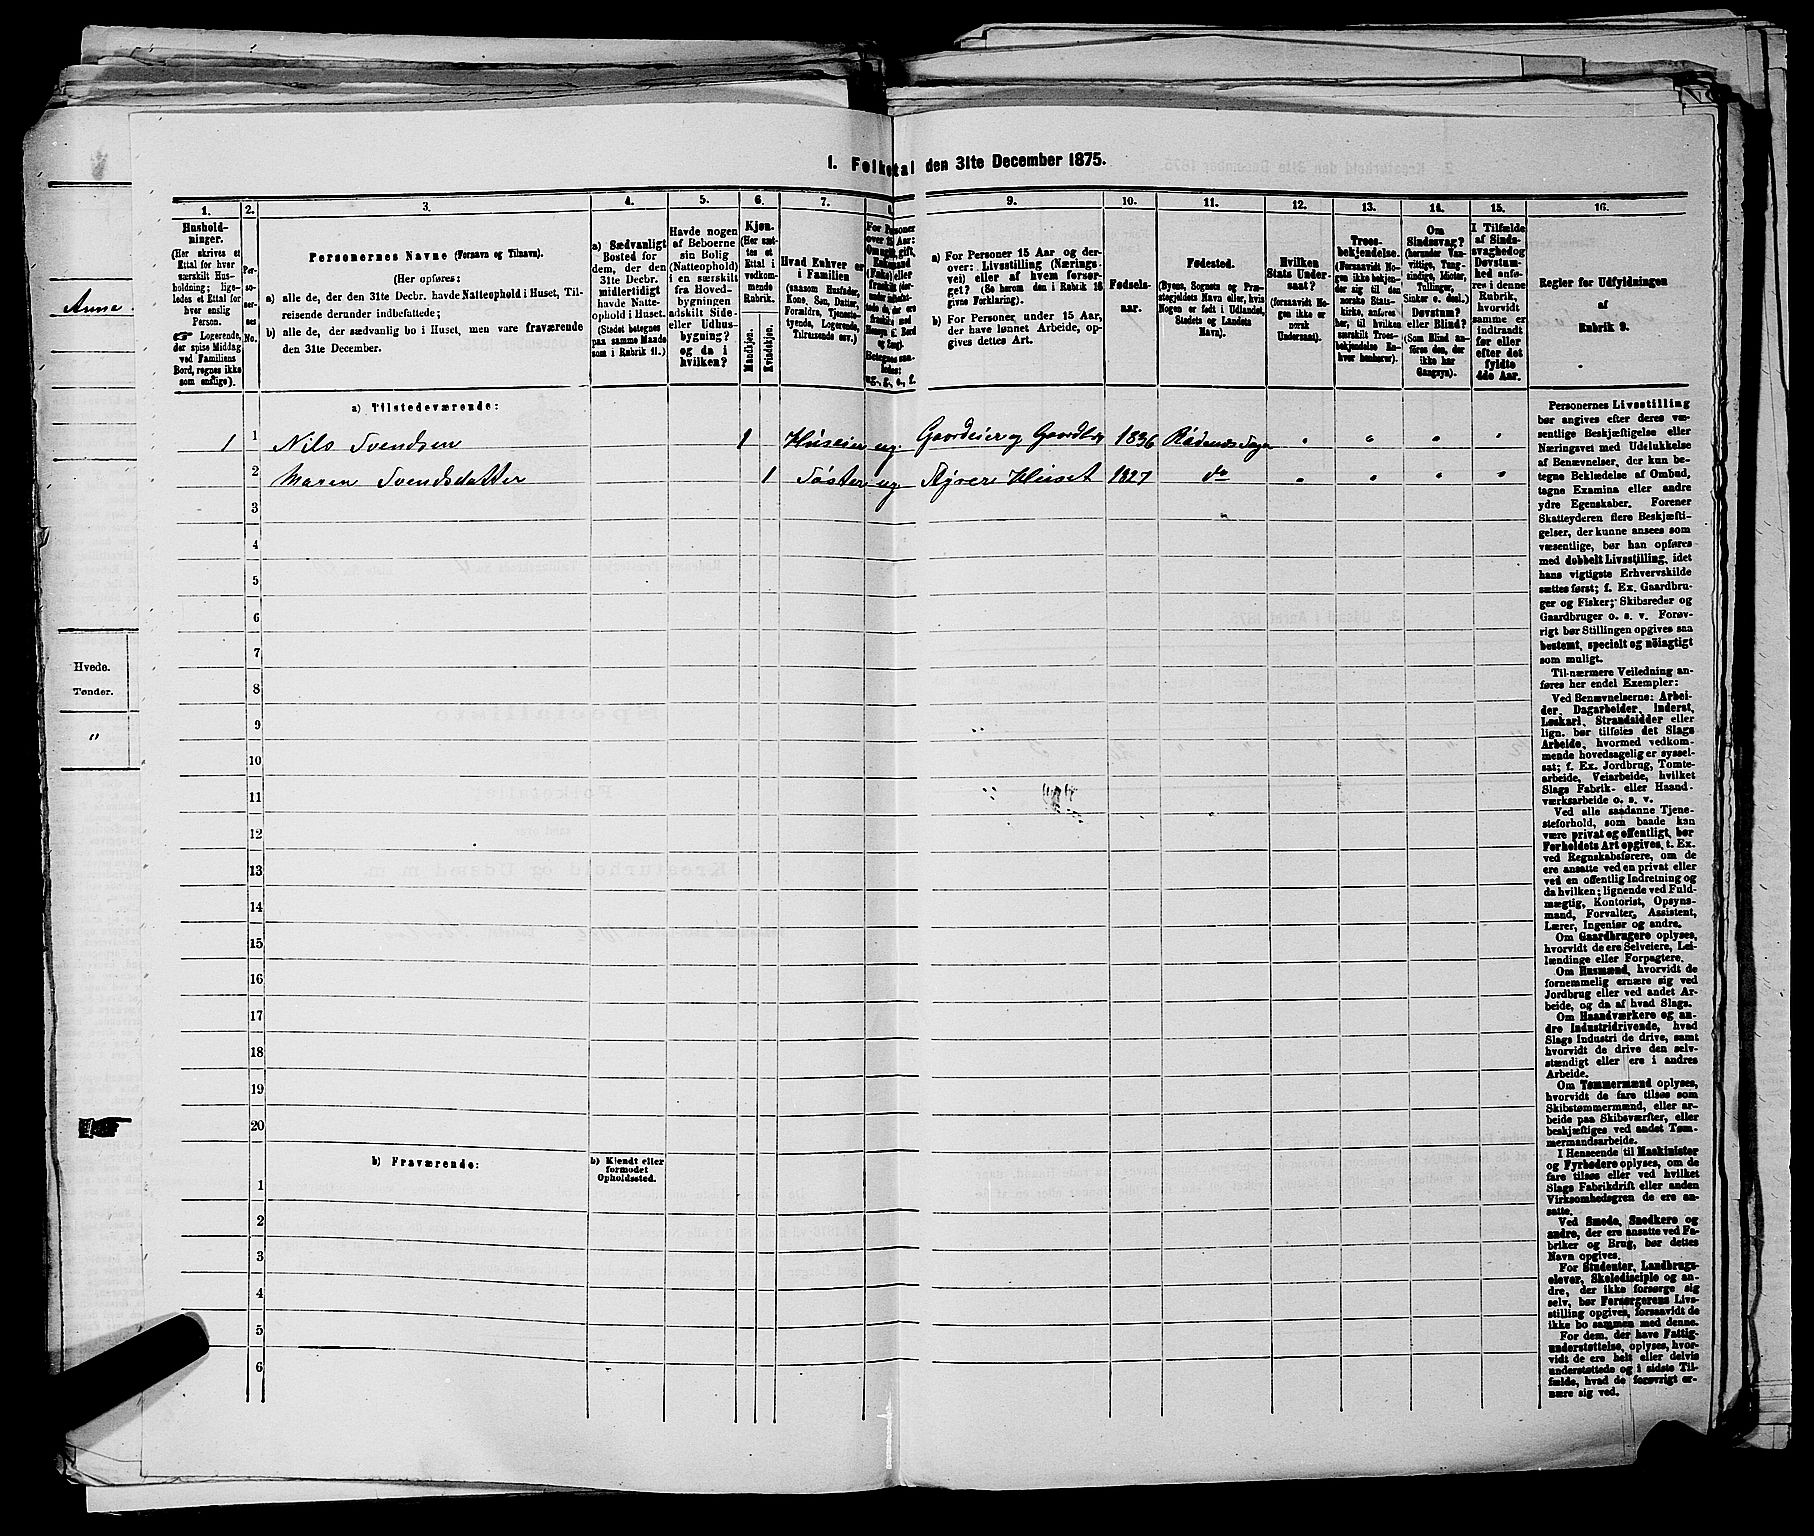 1. Folketal den 31te December 1875.
1. 2. 3. 4. 5. 6. 7. 8. 9. 10. 11. 12. 13. 14. 15. 16.
Anna
Hvede.
Tønder.
"
Hushold-
ninger.
(Her skrives et
Ettal for hver
særskilt Hus-
holdning; lige-
ledes et Ettal for
hver enslig
Person.
☞ Logerende,
der spise Middag
ved Familiens
Bord, regnes ikke
som enslige).
Per-
so-
ner-
nes
No.
Personernes Navne (Fornavn og Tilnavn).
(Her opføres:
a) alle de, der den 31te Decbr. havde Natteophold i Huset, Til-
reisende derunder indbefattede;
b) alle de, der sædvanlig bo i Huset, men vare fraværende
den 31te December.
a) Sædvanligt
Bosted for
dem, der den
31te Decbr.
midlertidigt
havde Natte-
ophold i Huset.
(Stedet betegnes
paa samme Maade
som i Rubrik 11.)
Havde nogen
af Beboerne
sin Bolig
(Natteophold)
i en særskilt
fra Hoved-
bygningen
adskilt Side-
eller Udhus-
bygning?
og da i
hvilken?
Kjøn.
(Her sæt-
tes et
Ettal i
vedkom-
mende
Rubrik.
Mandkjøn.
Kvindekjøn.
Hvad Enhver er
i Familien
(saasom Husfader,
Kone, Søn, Datter,
Forældre, Tjeneste-
tyende, Logerende,
Tilreisende osv.)
For Personer
over 15 Aar:
a) For Personer 15 Aar og der-
over: Livsstilling (Nærings-
vei) eller af hvem forsør-
get? (Se herom den i Rubrik 16
gives Forklaring).
b) For Personer under 15 Aar,
der have lønnet Arbeide, op-
gives dettes Art.
Fødsels-
aar.
Fødested.
(Byens, Sognets og Præ-
stegjeldets Navn eller, hvis
Nogen er født i Udlandet,
Stedets og Landets
Navn).
Hvilken
Stats Under-
saat?
(forsaavidt No-
gen ikke er
norsk
Undersaat).
Troes-
bekjendelse.
(Forsaavidt No-
gen ikke bekjen-
der sig til den
norske Stats-
kirke, anføres
her, til hvilken
særskilt Troes-
bekjendelse En-
hver henhører).
Om
Sindssvag?
(herunder Van-
vittige, Tung-
sindige, Idioter,
Sinker o. desl.)
Døvstum?
eller Blind?
(Som Blind an-
føres den, der
ikke har
Gangsyn).
I Tilfælde
af Sinds-
svaghed og
Døvstum-
hed anfø-
res i denne
Rubrik,
hvorvidt
samme er
indtraadt
før eller
efter det
fyldte
4de Aar.
Regler for Udfyldningen
af
Rubrik 9.
a) Tilstedeværende:
1 1 Nils Svendsen 1 Huseier ug. Gaardeier og Gaardbr 1836 Rødenæs " " " "
2 Maren Svendsdatter 1 Søster ug. Styrer Huset 1827 do " " " "
3
4
5
6
7
8
9
10
11
12
13
14
15
16
17
18
19
20
b) Fraværende:
b) Kjendt eller
formodet
Opholdssted.
1
2
3
4
5
6
Personernes Livsstilling
bør angives efter deres væ-
sentlige Beskjæftigelse eller
Næringsvei med Udelukkelse
af Benævnelser, der kun be-
tegne Beklædelse af Ombud,
tagne Examina eller andre
ydre Egenskaber. Forener
Skatteyderen flere Beskjæfti-
gelser, der kunne ansees som
væsentlige, bør han opføres
med dobbelt Livsstilling, idet
hans vigtigste Erhvervskilde
sættes først; f. Ex. Gaardbru-
ger og Fisker; Skibsreder og
Gaardbruger o. s. v. Forøv-
rigt bør Stillingen opgives saa
bestemt, specielt og nöiagtigt
som muligt.
Til nærmere Veiledning an-
føres her endel Exempler:
Ved Benævnelserne: Arbei-
der, Dagarbeider, Inderst,
Løskarl, Strandsidder eller
lign. bør tilføies det Slags
Arbeide, hvormed vedkom-
mende hovedsagelig er syssel-
sat; f. Ex. Jordbrug, Tomte-
arbeide, Veiarbeide, hvilket
Slags Fabrik- eller Haand-
værksarbeide o. s. v.
Ved alle saadanne Tjene-
steforhold, som baade kan
være privat og offentligt, bør
Forholdets Art opgives, t. Ex.
ved Regnskabsførere, om de
ere ansatte ved en privat eller
ved en offentlig Indretning og
da hvilken; lignende ved Fuld-
mægtig, Kontorist, Opsyns-
mand, Forvalter, Assistent,
Lærer, Ingeniør og andre.
Om Gaardbrugere oplyses,
hvorvidt de ere Selveiere, Lei-
lændinge eller Forpagtere.
Om Husmænd, hvorvidt de
fornemmelig ernære sig ved
Jordbrug eller ved andet Ar-
beide, og da af hvad Slags.
Om Haandværkere og an-
dre Industridrivende, hvad
Slags Industri de drive, samt
hvorvidt de drive den selv-
stændigt eller ere i andres
Arbeide.
Om Tømmermænd oplyses,
hvorvidt de fare tilsøs som
Skibstømmermænd, eller ar-
beide paa Skibsværfter, eller
beskjæftiges ved andet Tøm-
mermandsarbeide.
I Henseende til Maskinister
og Fyrbødere oplyses, om de
fare tilsøs eller ved hvilket
Slags Fabrikdrift eller anden
Virksomhedsgren de ere an-
satte.
Ved Smede, Snedkere og
andre, der ere ansatte ved Fa-
briker og Brug, bør dettes
Navn opgives.
For Studenter, Landbrugs-
elever, Skoledisciple og an-
dre, der ikke forsørge sig
selv, bør Forsørgerens Livs-
stilling opgives, forsaavidt de
ikke bo sammen med denne.
For dem, der have Fattig-
understøttelse, oplyses, hvor-
vidt de ere helt eller delvis
understøttede og i sidste Til-
fælde, hvad de forøvrigt er-
nære sig ved.